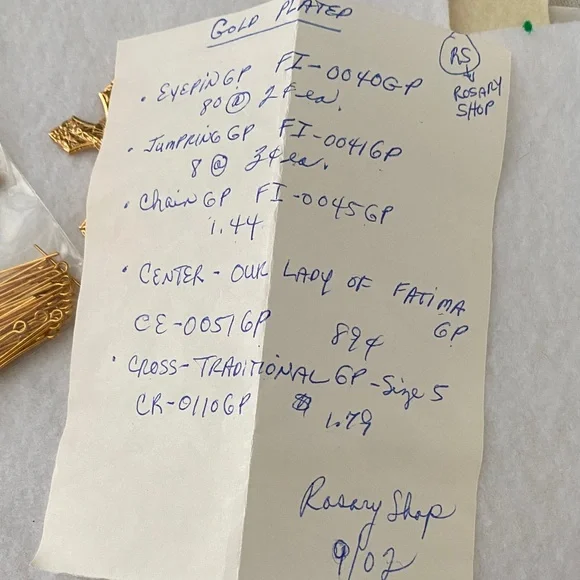 GOLD PLATED
RS
ROSARY
SHOP
• EYEPIN GP FI-0040GP
80 @ 2¢ ea.
• JUMPRING GP FI-0041GP
8 @ 3¢ ea.
• Chain GP FI-0045GP
1.44
• CENTER - OUR LADY OF FATIMA
GP
CE-0051GP 89¢
• CROSS-TRADITIONAL GP - Size 5
CR-0110GP $ 1.79
Rosary Shop
9/02